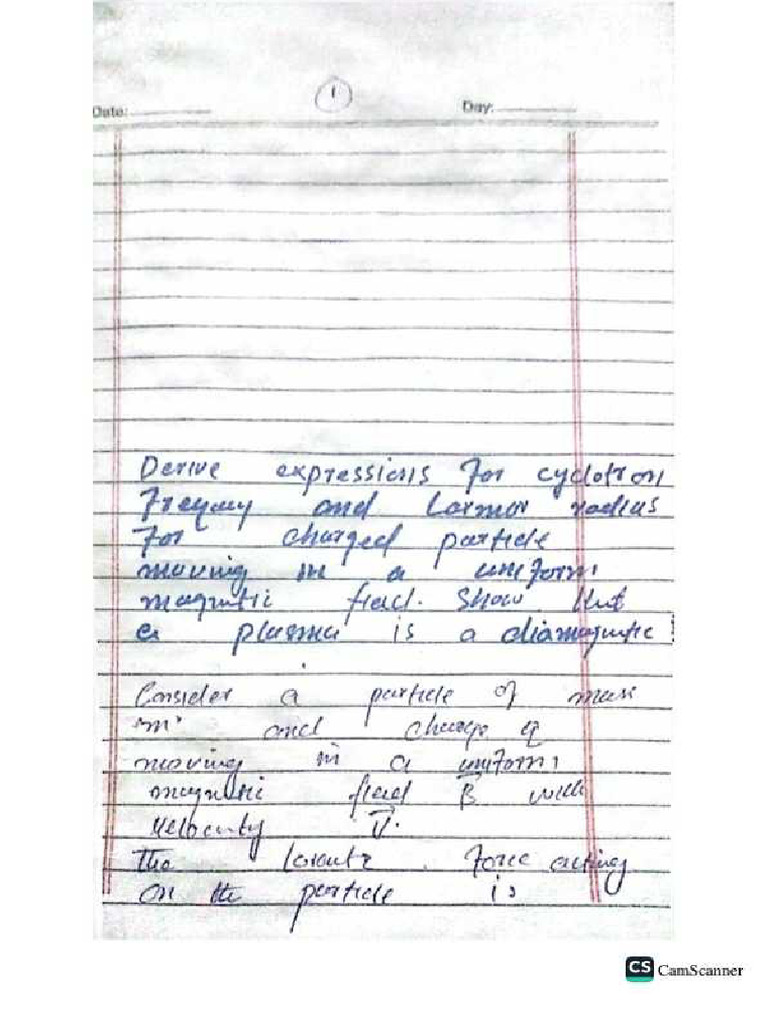 1
Date:
Day:
Derive expressions for cyclotron
and Larmor radius
For charged particle
moving in a uniform
magnetic field. Show that
a plasma is a diamagnetic
Consider a particle of mass
'm' and charge q
moving in a uniform
magnetic field B with
velocity V.
The Lorentz force acting
on the particle is
CS CamScanner